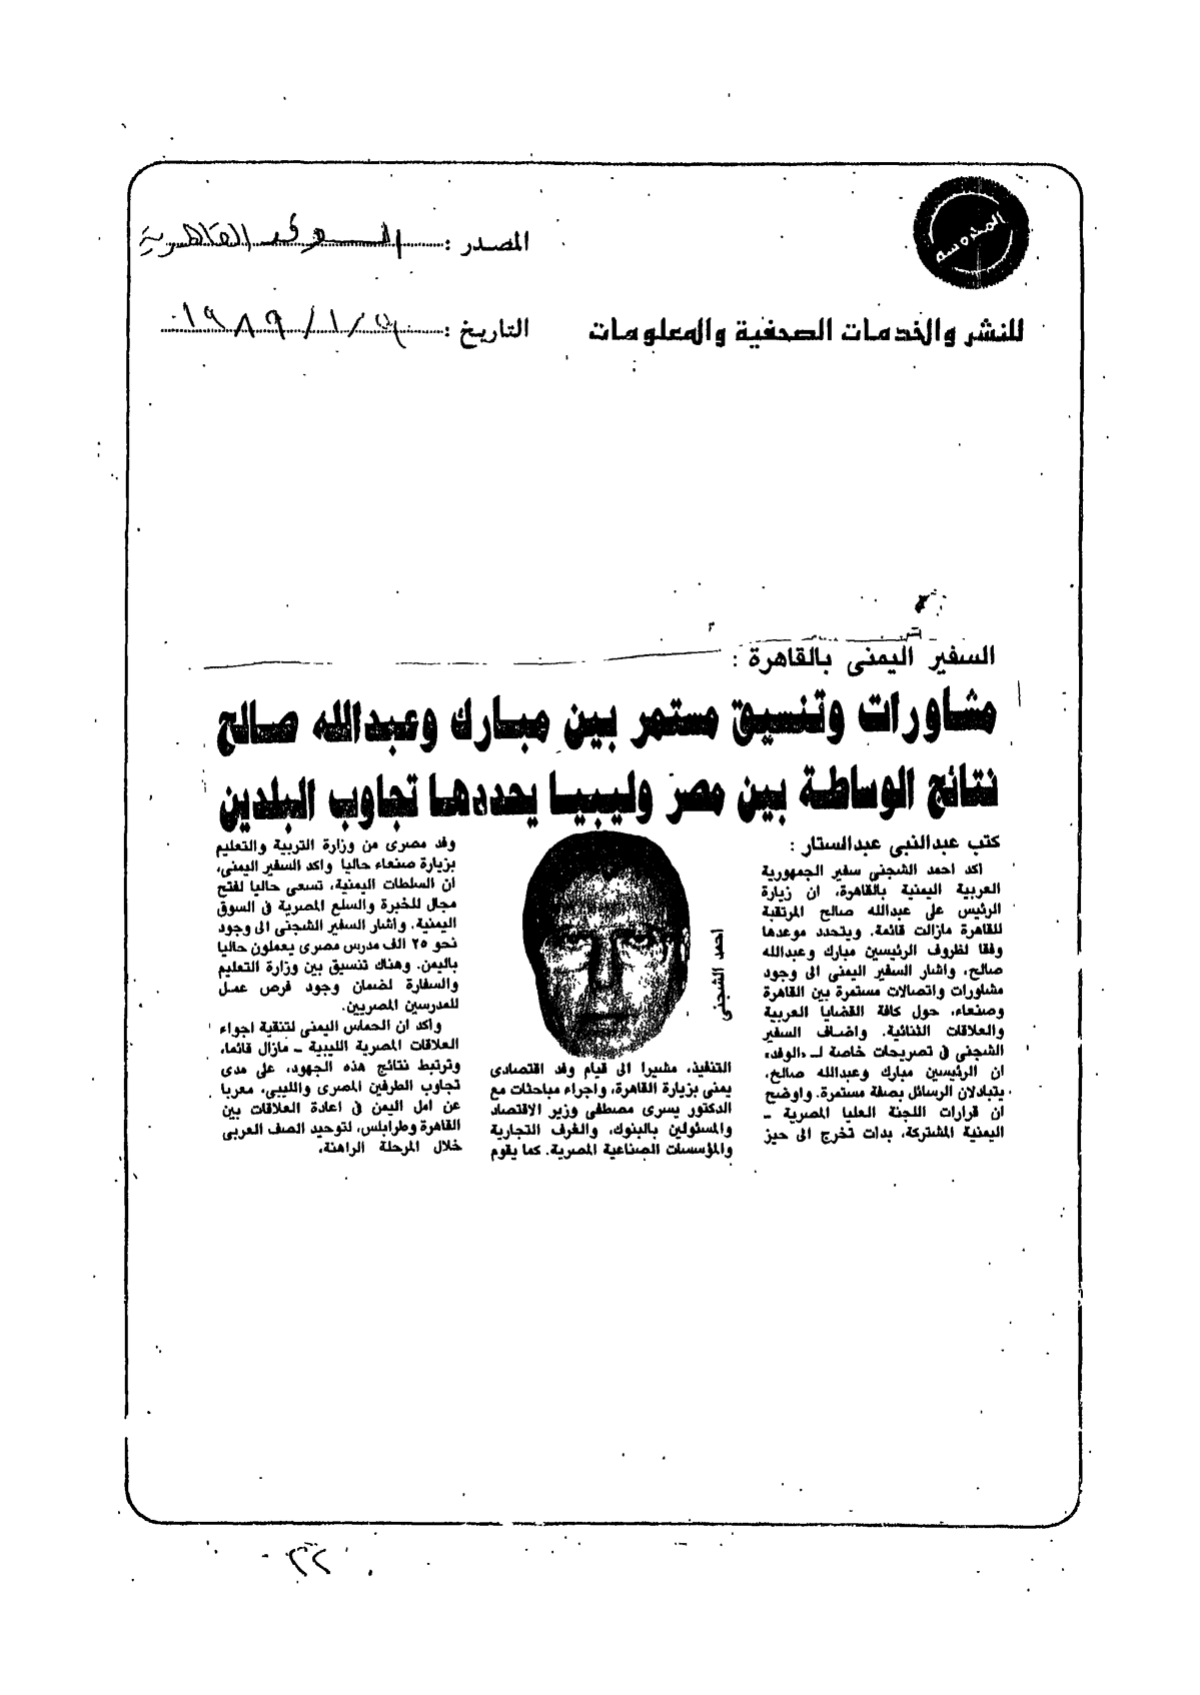 المحروسة
المصدر : الوفد القاهرية
للنشر والخدمات الصحفية والمعلومات
التاريخ : ١٩٨٩/١/
السفير اليمنى بالقاهرة :
مشاورات وتنسيق مستمر بين مبارك وعبدالله صالح
نتائج الوساطة بين مصر وليبيا يحددها تجاوب البلدين
كتب عبدالنبى عبدالستار :
اكد احمد الشجنى سفير الجمهورية
العربية اليمنية بالقاهرة، ان زيارة
الرئيس على عبدالله صالح المرتقبة
للقاهرة مازالت قائمة. ويتحدد موعدها
وفقا لظروف الرئيسين مبارك وعبدالله
صالح، واشار السفير اليمنى الى وجود
مشاورات واتصالات مستمرة بين القاهرة
وصنعاء، حول كافة القضايا العربية
والعلاقات الثنائية. واضاف السفير
الشجنى فى تصريحات خاصة لـ «الوفد»
ان الرئيسين مبارك وعبدالله صالح،
يتبادلان الرسائل بصفة مستمرة. واوضح
ان قرارات اللجنة العليا المصرية ـ
اليمنية المشتركة، بدات تخرج الى حيز
احمد الشجنى
التنفيذ، مشيرا الى قيام وفد اقتصادى
يمنى بزيارة القاهرة، واجراء مباحثات مع
الدكتور يسرى مصطفى وزير الاقتصاد
والمسئولين بالبنوك، والغرف التجارية
والمؤسسات الصناعية المصرية. كما يقوم
وفد مصرى من وزارة التربية والتعليم
بزيارة صنعاء حاليا واكد السفير اليمنى،
ان السلطات اليمنية، تسعى حاليا لفتح
مجال للخبرة والسلع المصرية فى السوق
اليمنية. واشار السفير الشجنى الى وجود
نحو ٢٥ الف مدرس مصرى يعملون حاليا
باليمن. وهناك تنسيق بين وزارة التعليم
والسفارة لضمان وجود فرص عمل
للمدرسين المصريين.
واكد ان الحماس اليمنى لتنقية اجواء
العلاقات المصرية الليبية ـ مازال قائما،
وترتبط نتائج هذه الجهود، على مدى
تجاوب الطرفين المصرى والليبى، معربا
عن امل اليمن فى اعادة العلاقات بين
القاهرة وطرابلس، لتوحيد الصف العربى
خلال المرحلة الراهنة.
٢٢